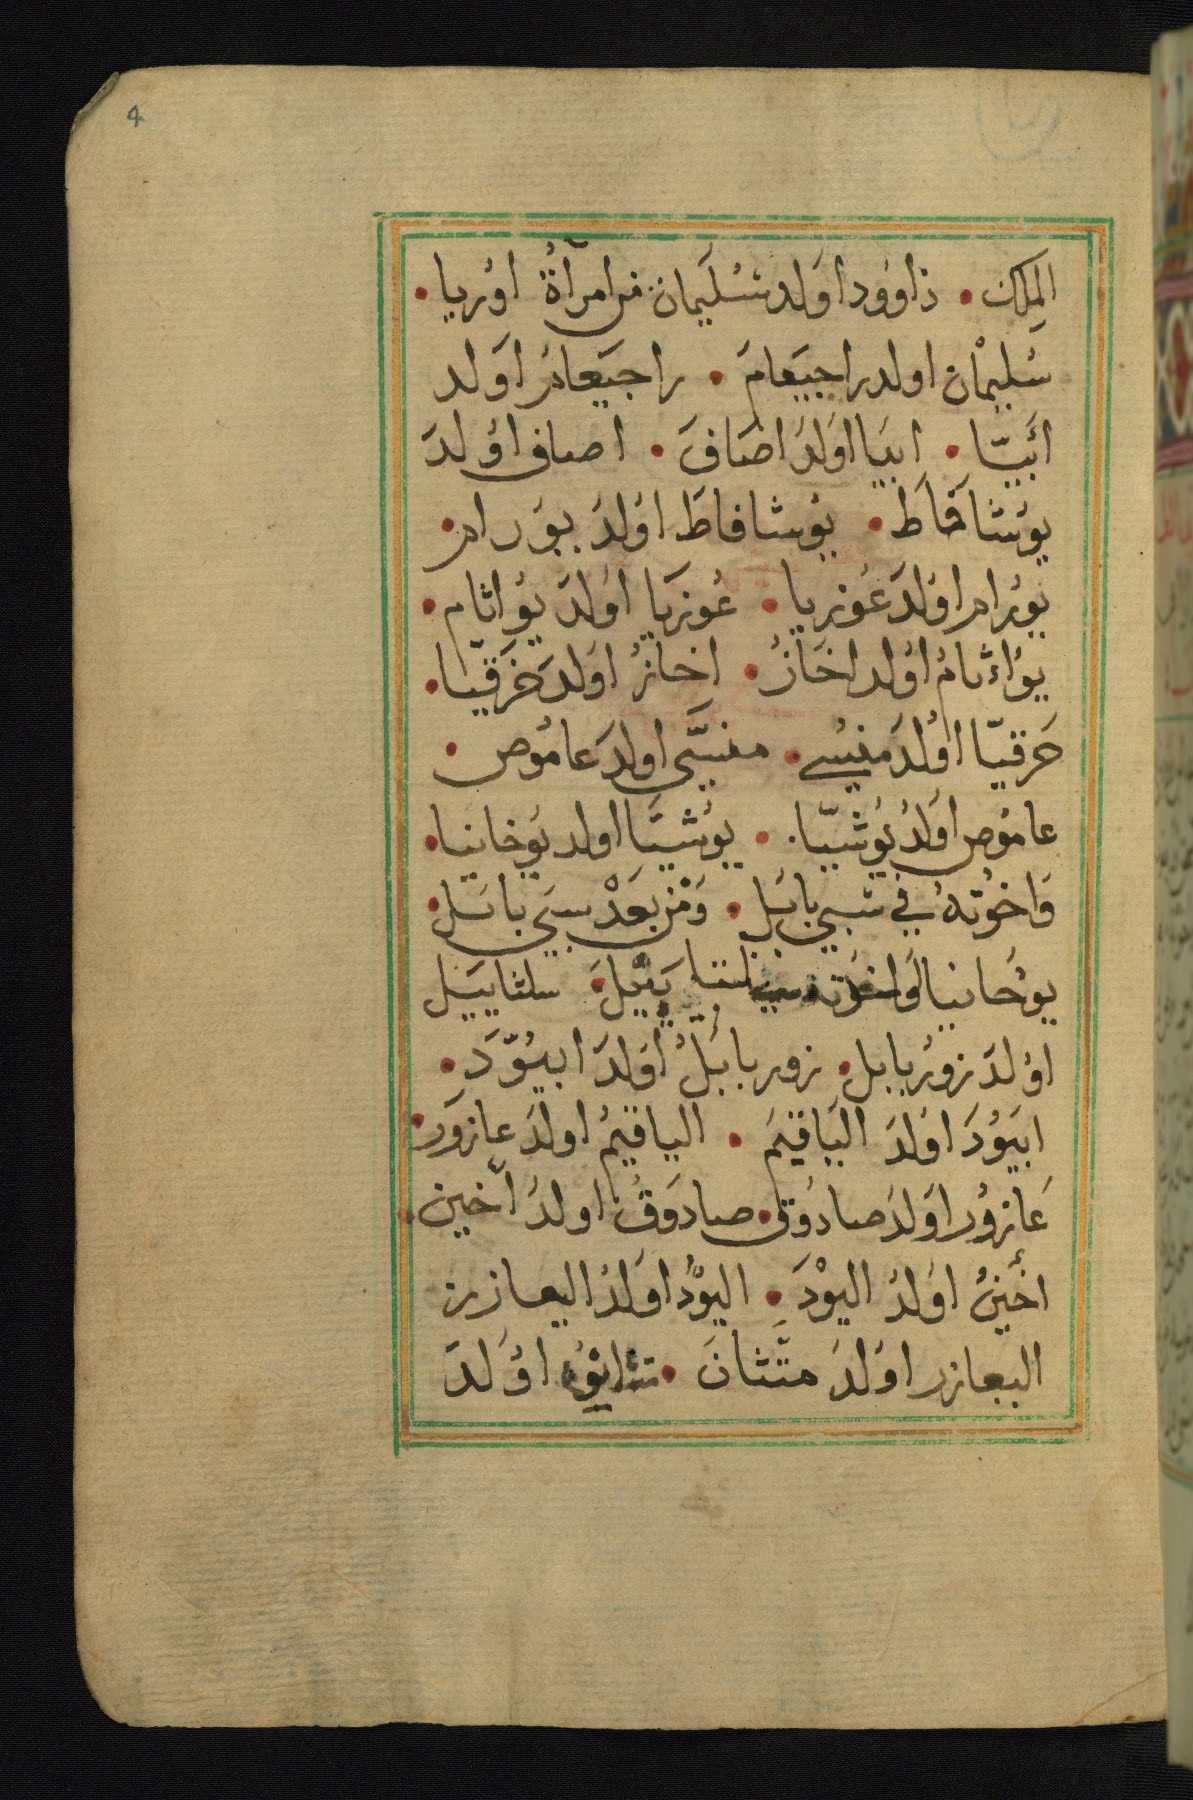 4
الملك • داوود اولد سليمان من امرأة اوريا •
سليمان اولد راجبيعام • راجبيعام اولد
ابيّا • ابيا اولد اصاف • اصاف اولد
يوشافاط • يوشافاط اولد يورام •
يورام اولد عوزيا • عوزيا اولد يواثام •
يواثام اولد اخاز • اخاز اولد حزقيّا •
حزقيّا اولد منسى • منسّى اولد عاموص •
عاموص اولد يوشيّا • يوشيّا اولد يوخانيا •
واخوته في سبي بابل • ومن بعد سبي بابل •
يوخانيا سلثاييل
اولد زوربابل • زوربابل اولد ابيوّد •
ابيود اولد الياقيم • الياقيم اولد عازور •
عازور اولد صادوق • صادوق اولد اخين •
اخين اولد اليود • اليود اولد اليعازر
اليعازر اولد متّثان • اولد